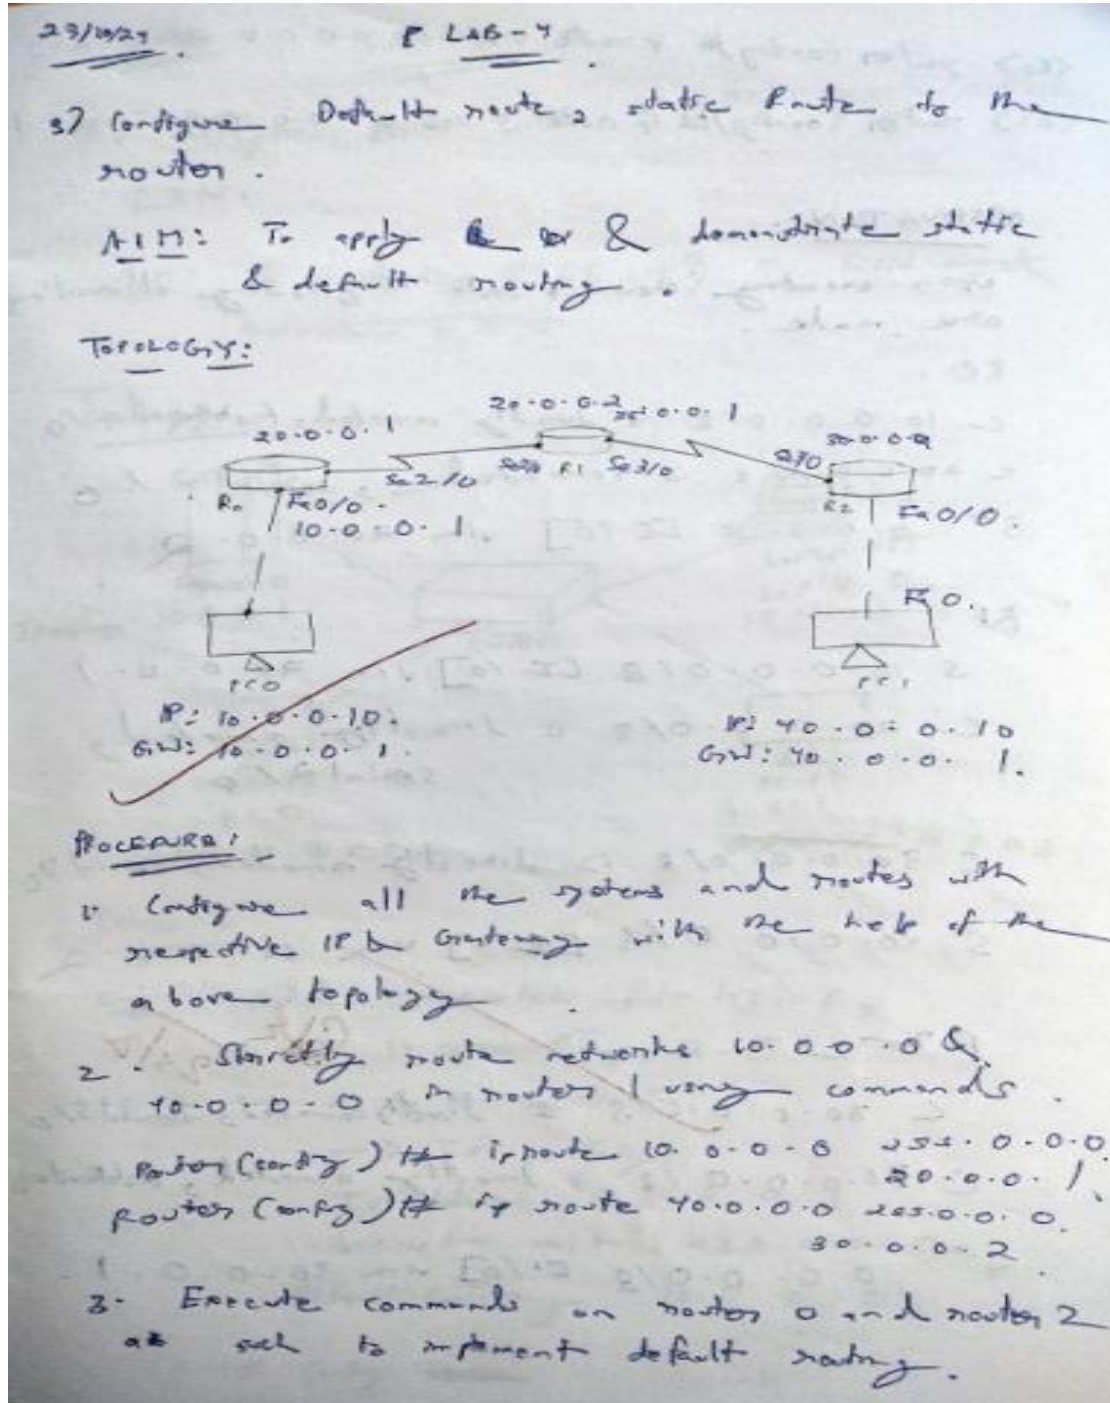 LAB-4
3) Configure Default route, static Route to the
router.
AIM: To apply & demonstrate static
& default routing.
TOPOLOGY:
20.0.0.2
20.0.0.1
Se2/0
R1 Se3/0
R0
Fa0/0
10.0.0.1
R2
Fa0/0.
Fa0.
PC0
PC1
IP: 10.0.0.10.
GW: 10.0.0.1.
IP: 40.0.0.10
GW: 40.0.0.1.
PROCEDURE:
1. Configure all the systems and routes with
respective IP & Gateway with the help of the
above topology.
2. route networks 10.0.0.0 &
40.0.0.0 in router 1 using commands.
Router(config)# ip route 10.0.0.0 255.0.0.0
20.0.0.1
Router(config)# ip route 40.0.0.0 255.0.0.0.
30.0.0.2
3. Execute commands on router 0 and router 2
as such to implement default routing.